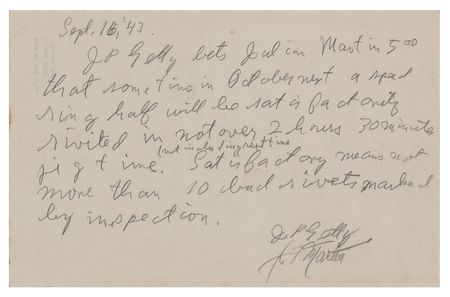 Sept. 16, '43.
J P Getty bets Julian Martin 5 00
that sometime in October next a spad
ring half will be satisfactorily
rivited in not over 2 hours 30 minute
(not including rest time
jig time. Satisfactory means not
more than 10 bad rivets marked
by inspection.
J P Getty
Martin